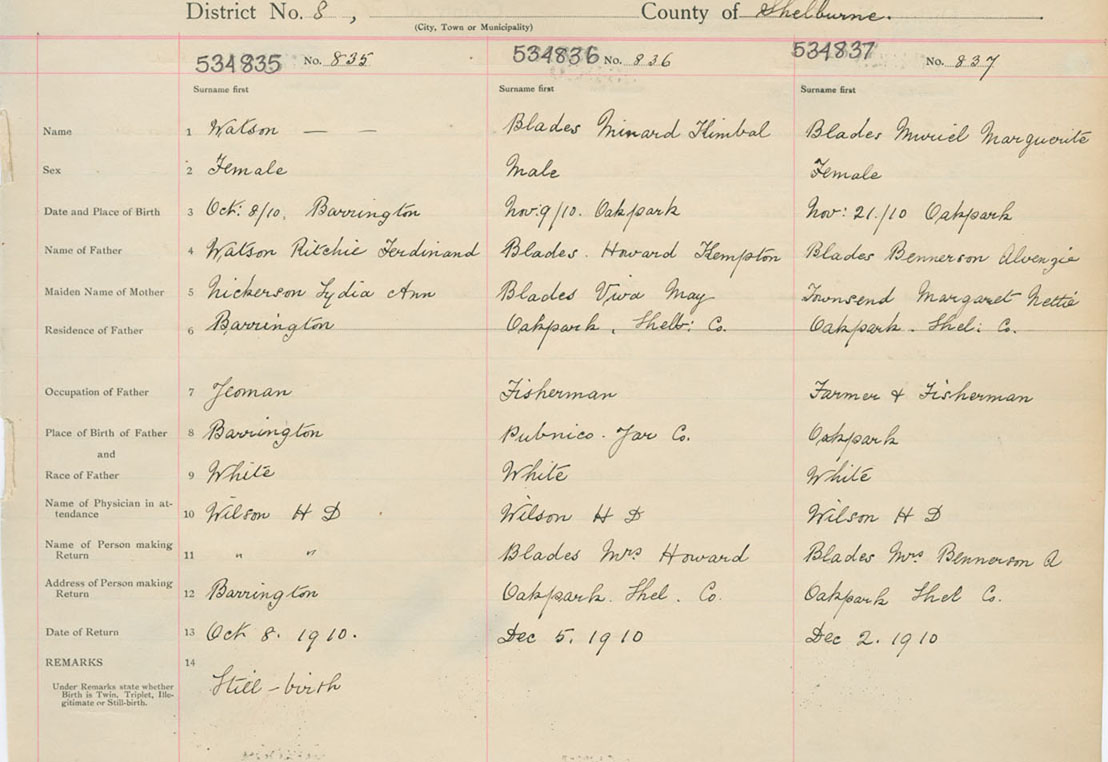 District No. 8, County of Shelburne.
(City, Town or Municipality)
534835 No. 835 534836 No. 836 534837 No. 837
Surname first Surname first Surname first
Name 1 Watson — — Blades Minard Kimbal Blades Muriel Marguerite
Sex 2 Female Male Female
Date and Place of Birth 3 Oct: 8/10. Barrington Nov: 9/10. Oakpark Nov: 21./10 Oakpark
Name of Father 4 Watson Ritchie Ferdinand Blades. Howard Kempton Blades Bennerson Alvenzie
Maiden Name of Mother 5 Nickerson Lydia Ann Blades Viva May Townsend Margaret Nettie
Residence of Father 6 Barrington Oakpark, Shelb: Co. Oakpark. Shel: Co.
Occupation of Father 7 Yeoman Fisherman Farmer & Fisherman
Place of Birth of Father 8 Barrington Pubnico. Yar Co. Oakpark
and
Race of Father 9 White White White
Name of Physician in at-
tendance 10 Wilson H D Wilson H D Wilson H D
Name of Person making
Return 11 " " Blades Mrs Howard Blades Mrs Bennerson A
Address of Person making
Return 12 Barrington Oakpark. Shel. Co. Oakpark Shel Co.
Date of Return 13 Oct 8. 1910. Dec 5. 1910 Dec 2. 1910
REMARKS 14
Under Remarks state whether
Birth is Twin. Triplet, Ille-
gitimate or Still-birth.
Still-birth